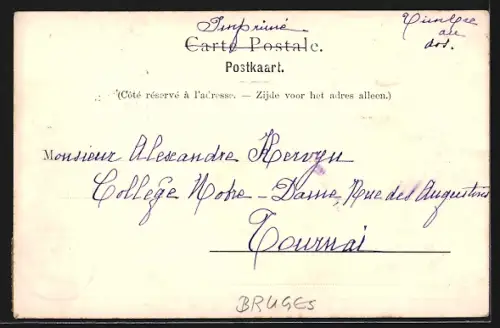 Imprimé
Timbre
au
dos.
Carte Postale.
Postkaart.
(Côté réservé à l'adresse. — Zijde voor het adres alleen.)
Monsieur Alexandre Kervyn
Collège Notre-Dame, Rue des Augustins
Tournai
BRUGES